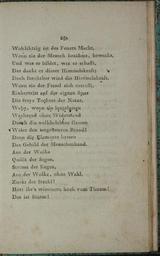 Wohlthätig ist des Feuers Macht,
Wenn sie der Mensch bezähmt, bewacht,
Und was er bildet, was er schafft,
Das dankt er dieser Himmelskraft;
Doch furchtbar wird die Himmelskraft,
Wenn sie der Fessel sich entrafft,
Einhertritt auf der eignen Spur
Die freye Tochter der Natur.
Wehe, wenn sie losgelassen
Wachsend ohne Widerstand
Durch die volkbelebten Gassen
Wälzt den ungeheuren Brand!
Denn die Elemente hassen
Das Gebild der Menschenhand.
Aus der Wolke
Quillt der Segen,
Strömt der Regen,
Aus der Wolke, ohne Wahl,
Zuckt der Strahl!
Hört ihr's wimmern hoch vom Thurm!
Das ist Sturm!